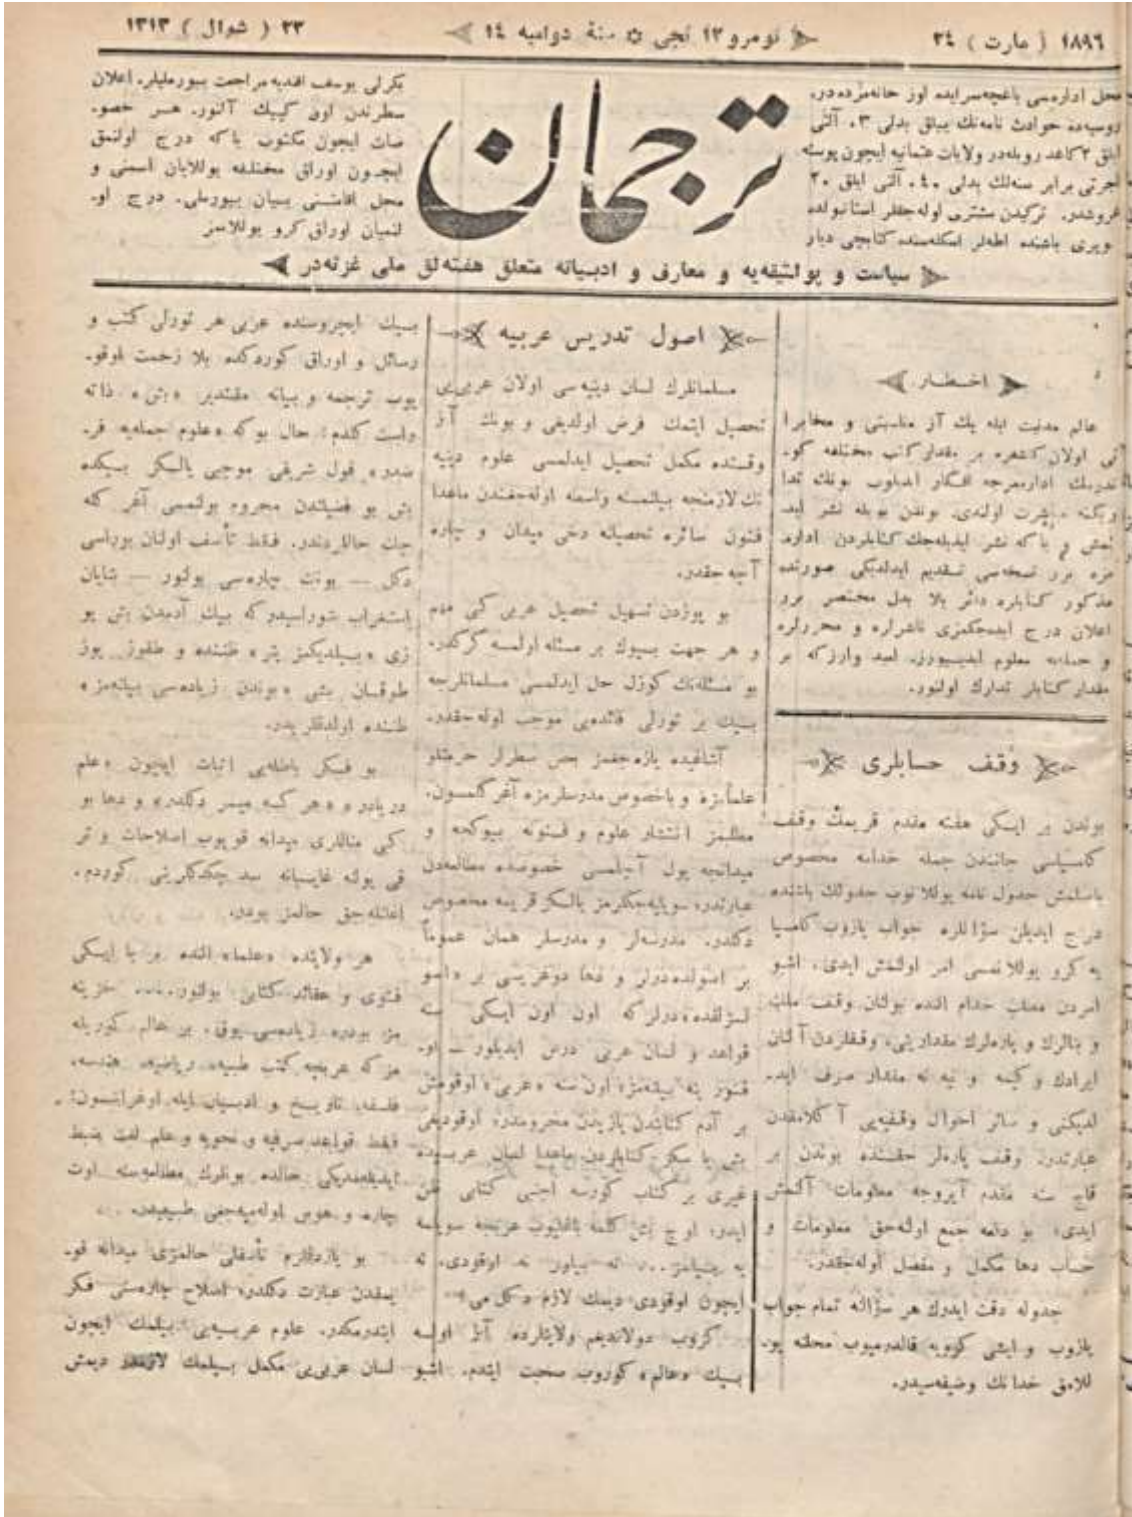 ١٨٩٦ ( مارت ) ٢٤
نومرو ١٢ نجی ۞ سنهٔ دوامیه ١٤
٢٣ ( شوال ) ١٣١٣
محل اداره‌سی باغچه‌سرایده اوز خانه‌مزده‌در.
روسیه‌ده حوادث نامه‌نك ییللق بدلی ٣، آلتی
ایلق ٢ كاغد روبله‌در ولایات عثمانیه ایچون پوسته
اجرتی برابر سنه‌لك بدلی ٤٠، آلتی ایلق ٢٠
غروشدر. تركیدن مشتری اوله‌جقلر استانبولده
ویری باشنده اطه‌لر اسكله‌سنده كتابچی دیار
ترجمان
بكرلی یوسف افندیه مراجعت بیورملیلر. اعلان
سطرندن اون كپیك آلنور. هر خصو-
صات ایچون مكتوب یاكه درج اولنمق
ایچون اوراق مختلفه یوللایان اسمنی و
محل اقامتنی بیان بیورملی. درج او-
لنمیان اوراق كرو یوللانمز
سیاست و پولتیقه‌یه و معارف و ادبیاته متعلق هفته‌لق ملی غزته‌در
اخطار
عالم مدنیت ایله پك آز مناسبتی و مخابرا
تی اولان كشفره بر مقدار كتب مختلفه كو-
ندرمك اداره‌مزجه افكار ایدیلوب بونك تدا
ركنه مباشرت اولندی. بوندن بویله نشر اید-
لمش و یاكه نشر ایدیله‌جك كتابلردن اداره
مزه برر نسخه‌سی تقدیم ایدلدیكی صورتده
مذكور كتابلره دائر بلا بدل مختصر برر
اعلان درج ایده‌جكمزی ناشرلره و محررلره
و جمله‌یه معلوم ایدییورز. امید وارز كه بر
مقدار كتابلر تدارك اولنور.
وقف حسابلری
بوندن بر ایكی هفته مقدم قریمڭ وقف
كامسیاسی جانبندن جمله خدامه مخصوص
باصلمش جدول نامه یوللانوب جدولك باشنده
درج ایدیلن سؤاللره جواب یازوب كامسیا
یه كرو یوللانمسی امر اولنمش ایدی. اشبو
امردن مطلب خدام النده بولنان وقف ملك
و بنالرك و پاره‌لرك مقدارینی، وقفلردن آلنان
ایرادك و كیمه و نیه نه مقدار صرف اید-
لدیكنی و سائر احوال وقفیه‌یی آكلامقدن
عبارتدر. وقف پاره‌لر حقنده بوندن بر
قاچ سنه مقدم آیروجه معلومات آلنمش
ایدی؛ بو دفعه جمع اوله‌جق معلومات و
حساب دها مكمل و مفصل اوله‌جقدر.
جدوله دقت ایدرك هر سؤاله تمام جواب
یازوب و ایشی كرویه قالدرمیوب محلنه یو-
للامق خدانك وضیفه‌سیدر.
اصول تدریس عربیه
مسلمانلرك لسان دینیه‌سی اولان عربی‌یی
تحصیل ایتمك فرض اولدیغی و بونك آز
وقتده مكمل تحصیل ایدلمسی علوم دینیه
نك لازمنجه بیلنمسنه واسطه اوله‌جغندن ماعدا
فنون سائره تحصیلنه دخی میدان و چاره
آچه‌جقدر.
بو یوزدن تسهیل تحصیل عربی كبی مهم
و هر جهت بیوك بر مسئله اولمسه كركدر.
بو مسئله‌نك كوزل حل ایدلمسی مسلمانلرجه
بیك بر تورلی فائده‌یی موجب اوله‌جقدر.
آشاغیده یازه‌جغمز بعض سطرلر حرمتلو
علمامزه و باخصوص مدرسلرمزه آغر كلمسون.
مطلبمز انتشار علوم و فنونه بیوكجه و
میدانجه یول آچلمسی خصوصده مطالعه‌دن
عبارتدر. سویلیه‌جكلرمز یالكز قریمه مخصوص
دكلدر. مدرسه‌لر و مدرسلر همان عموماً
بر اصولده‌درلر و دها دوغریسی بر «اصو
لسزلقده»درلر كه اون اون ایكی سنه
قواعد و لسان عربی درس ایدیلور — او-
قنور ینه بیتنمز؛ اون سنه «عربی» اوقومش
بر آدم كتابتدن یازیدن محرومدر، اوقودیغی
بش یا سكز كتابلردن ماعدا لسان عربیده
غیری بر كتاب كورسه اجنبی كتابی ظن
ایدر؛ اوچ بش كلمه باغلیوب عربجه سویلمه
یه چیامز... نه بیلور نه اوقودی، نه
ایچون اوقودی دیمك لازم دكل می؟
كزوب دولاندیغم ولایتلرده آز اولسه
بیك «عالم» كوروب صحبت ایتدم. اشبو
بیك ایچروسنده عربی هر تورلی كتب و
رسائل و اوراق كوردكده بلا زحمت اوقو-
یوب ترجمه و بیانه مقتدیر «بش» ذاته
راست كلدم؛ حال بوكه «علوم جمله‌یه فر-
ضدر» قول شریفی موجبی یالكز بیكده
بش بو فضیلتدن محروم بولنمسی آغر كله
جك حاللردندر. فقط تأسف اولنان بوراسی
دكل — بونك چاره‌سی بولنور — شایان
استغراب شوراسیدر كه بیك آدمدن بش یو
زی «بیلدیكمز یتر» ظننده و طقوز یوز
طوقسان بشی «بوندن زیاده‌سی بیلنمز»
ظننده اولدقلریدر.
بو فكر باطله‌یی اثبات ایچون «علم
دریادر» «هر كسه میسر دكلدر» و دها بو
كبی مثاللری میدانه قویوب اصلاحات و تر
قی یولنه غایبانه سد چكدكلرینی كوردم.
اغلنه‌جق حالمز بودر.
هر ولایتده «علما» النده بر یا ایكی
فتوی و عقائد كتابی بولنور... خزینه
مز بودر، زیاده‌سی یوق. بر عالم كوریله
مز كه عربجه كتب طبیه، ریاضیه، هندسه،
فلسفه، تاریخ و ادبیات ایله اوغراشسون؛
فقط قواعد صرفیه و نحویه و علم لغت ضبط
ایدیله‌مدیكی حالده بونلرك مطالعه‌سنه اوت
چاره و هوس اوله‌میه‌جغی طبیعیدر.
بو یازدقلرم تأسفلی حالمزی میدانه قو-
یمقدن عبارت دكلدر، اصلاح چاره‌سنی فكر
ایتدرمكدر. علوم عربیه‌یی بیلمك ایچون
لسان عربی‌یی مكمل بیلمك لازمدر دیمش